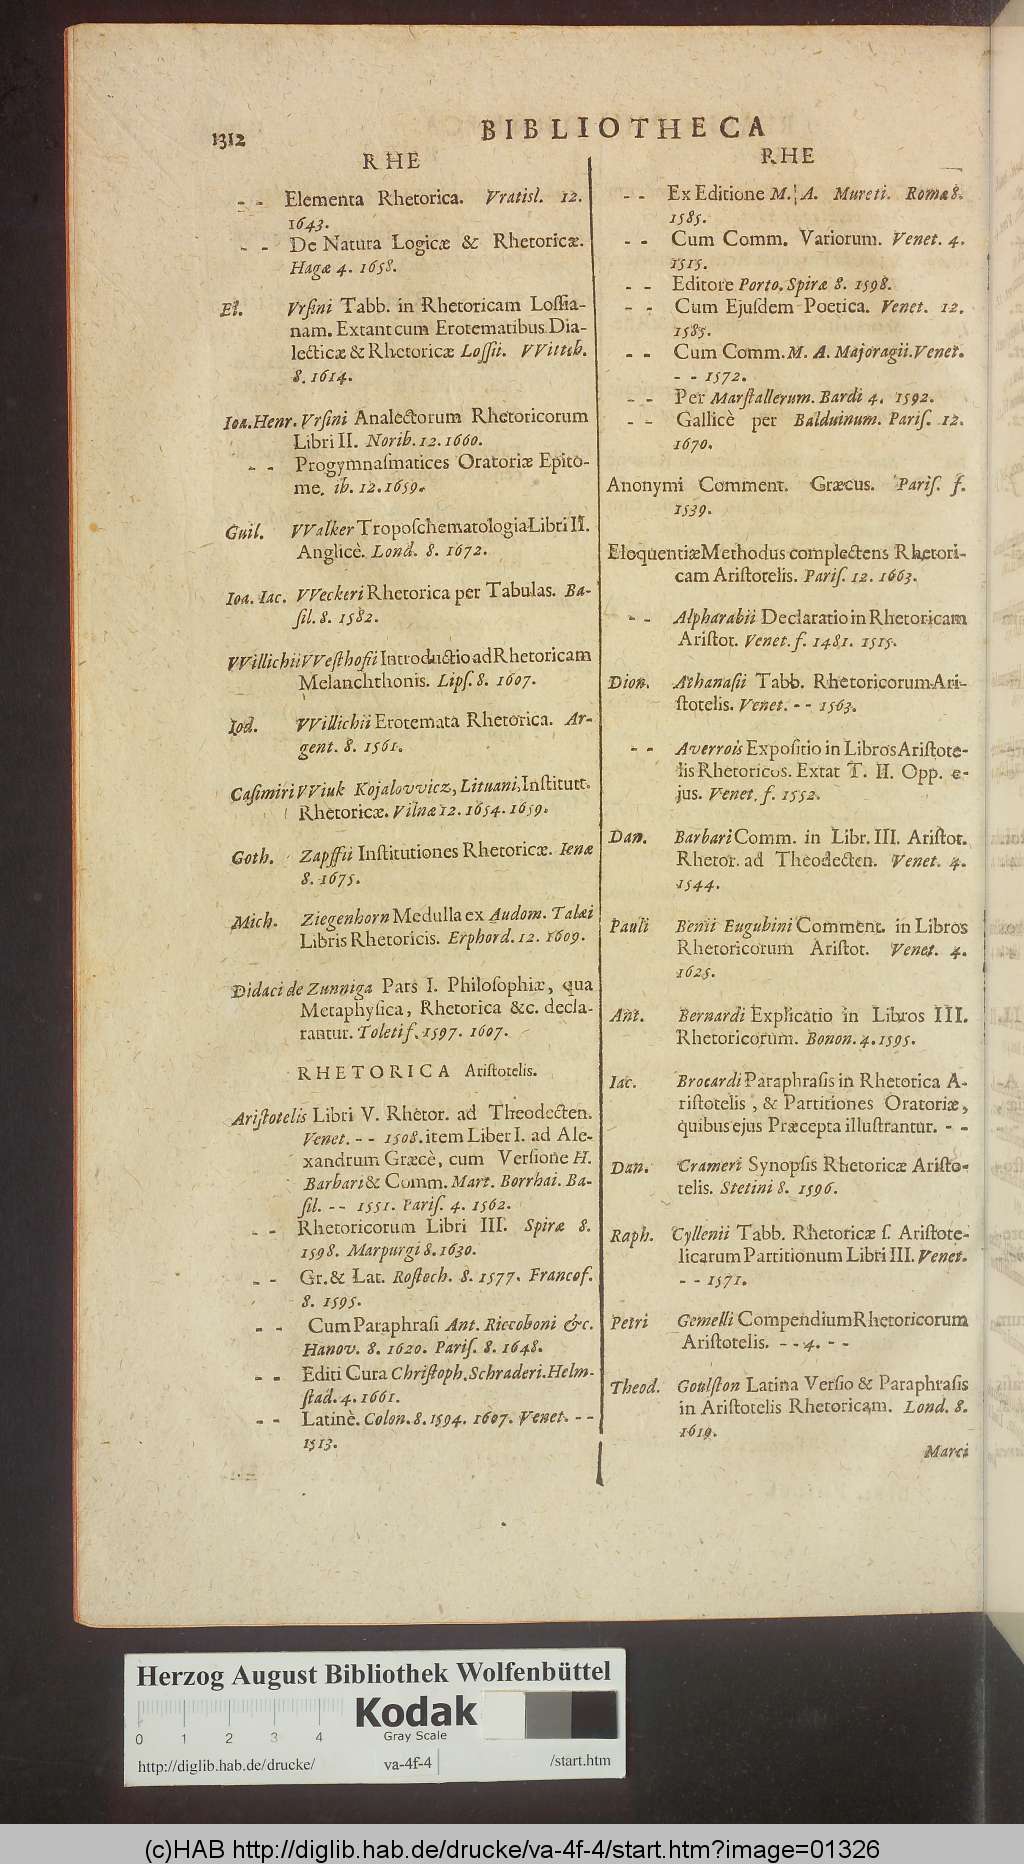 1312
BIBLIOTHECA
RHE
- - Elementa Rhetorica. Vratisl. 12.
1643.
- - De Natura Logicæ & Rhetoricæ.
Hagæ 4. 1658.
El. Vrſini Tabb. in Rhetoricam Loſſia-
nam. Extant cum Erotematibus Dia-
lecticæ & Rhetoricæ Loſſii. VVitteb.
8. 1614.
Ioa. Henr. Vrſini Analectorum Rhetoricorum
Libri II. Norib. 12. 1660.
- - Progymnaſmatices Oratoriæ Epito-
me. ib. 12. 1659.
Guil. VValker Tropoſchematologia Libri II.
Anglicè. Lond. 8. 1672.
Ioa. Iac. VVeckeri Rhetorica per Tabulas. Ba-
ſil. 8. 1582.
VVillichii VVeſthofii Introductio ad Rhetoricam
Melanchthonis. Lipſ. 8. 1607.
Iod. VVillichii Erotemata Rhetorica. Ar-
gent. 8. 1561.
Caſimiri VViuk Kojalovvicz, Lituani, Inſtitutt.
Rhetoricæ. Vilnæ 12. 1654. 1659.
Goth. Zapffii Inſtitutiones Rhetoricæ. Ienæ
8. 1675.
Mich. Ziegenhorn Medulla ex Audom. Talæi
Libris Rhetoricis. Erphord. 12. 1609.
Didaci de Zunniga Pars I. Philoſophiæ, qua
Metaphyſica, Rhetorica &c. decla-
rantur. Toleti f. 1597. 1607.
RHETORICA Ariſtotelis.
Ariſtotelis Libri V. Rhetor. ad Theodecten.
Venet. - - 1508. item Liber I. ad Ale-
xandrum Græcè, cum Verſione H.
Barbari & Comm. Mart. Borrhai. Ba-
ſil. - - 1551. Pariſ. 4. 1562.
- - Rhetoricorum Libri III. Spiræ 8.
1598. Marpurgi 8. 1630.
- - Gr. & Lat. Roſtoch. 8. 1577. Francof.
8. 1595.
- - Cum Paraphraſi Ant. Riccoboni &c.
Hanov. 8. 1620. Pariſ. 8. 1648.
- - Editi Cura Chriſtoph. Schraderi. Helm-
ſtad. 4. 1661.
- - Latinè. Colon. 8. 1594. 1607. Venet. - -
1513.
RHE
- - Ex Editione M. A. Mureti. Romæ 8.
1585.
- - Cum Comm. Variorum. Venet. 4.
1515.
- - Editore Porto. Spiræ 8. 1598.
- - Cum Ejuſdem Poetica. Venet. 12.
1585.
- - Cum Comm. M. A. Majoragii. Venet.
- - 1572.
- - Per Marſtallerum. Bardi 4. 1592.
- - Gallicè per Balduinum. Pariſ. 12.
1670.
Anonymi Comment. Græcus. Pariſ. f.
1539.
Eloquentiæ Methodus complectens Rhetori-
cam Ariſtotelis. Pariſ. 12. 1663.
- - Alpharabii Declaratio in Rhetoricam
Ariſtot. Venet. f. 1481. 1515.
Dion. Athanaſii Tabb. Rhetoricorum Ari-
ſtotelis. Venet. - - 1563.
- - Averrois Expoſitio in Libros Ariſtote-
lis Rhetoricos. Extat T. II. Opp. e-
jus. Venet. f. 1552.
Dan. Barbari Comm. in Libr. III. Ariſtot.
Rhetor. ad Theodecten. Venet. 4.
1544.
Pauli Benii Eugubini Comment. in Libros
Rhetoricorum Ariſtot. Venet. 4.
1625.
Ant. Bernardi Explicatio in Libros III.
Rhetoricorum. Bonon. 4. 1595.
Iac. Brocardi Paraphraſis in Rhetorica A-
riſtotelis, & Partitiones Oratoriæ,
quibus ejus Præcepta illuſtrantur. - -
Dan. Crameri Synopſis Rhetoricæ Ariſto-
telis. Stetini 8. 1596.
Raph. Cyllenii Tabb. Rhetoricæ ſ. Ariſtote-
licarum Partitionum Libri III. Venet.
- - 1571.
Petri Gemelli Compendium Rhetoricorum
Ariſtotelis. - - 4. - -
Theod. Goulſton Latina Verſio & Paraphraſis
in Ariſtotelis Rhetoricam. Lond. 8.
1619.
Marci
Herzog August Bibliothek Wolfenbüttel
Kodak
Gray Scale
0 1 2 3 4
http://diglib.hab.de/drucke/ va-4f-4 /start.htm
(c)HAB http://diglib.hab.de/drucke/va-4f-4/start.htm?image=01326